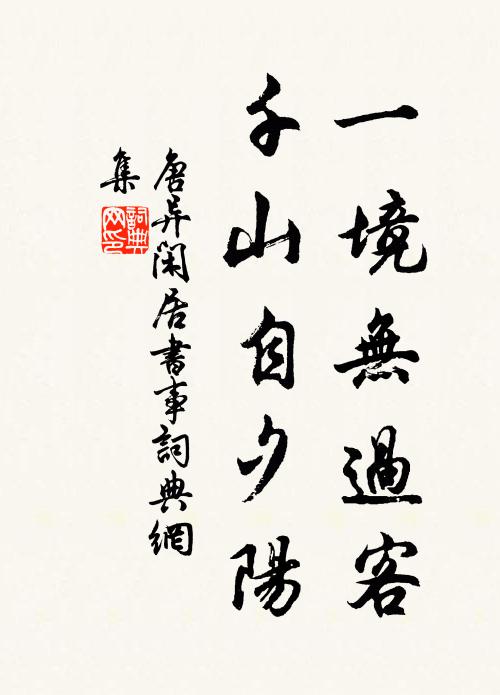 一境無過客
千山自夕陽
唐异閑居書事詞典網
集
詞典
网印